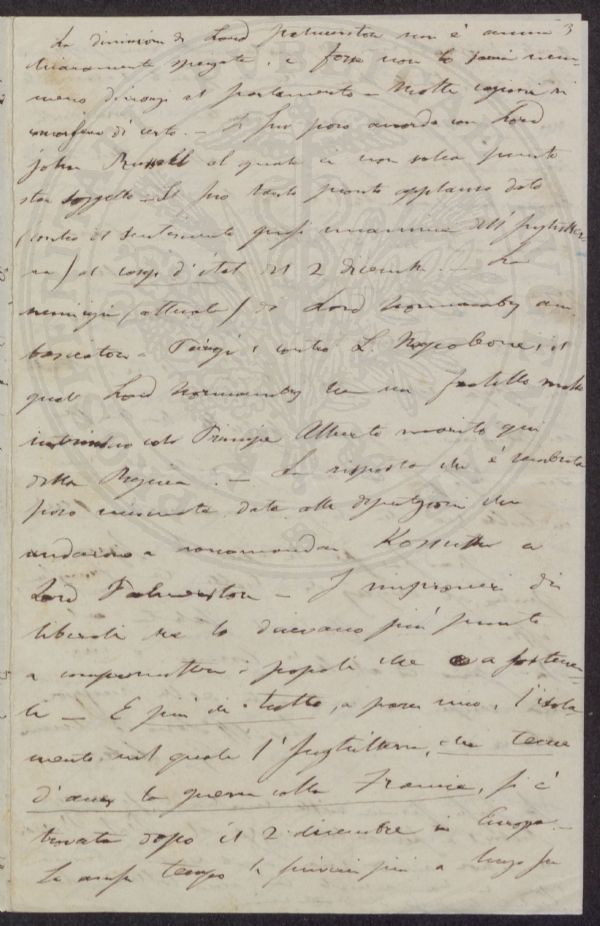 3
La dimissione di Lord Palmerston non è ancora
chiaramente spiegata, e forse non lo sarà nem
meno dinanzi al parlamento — Molte cagioni vi
di certo. — Il suo poco accordo con Lord
John Russell al quale ei non volea punto
star soggetto — Il suo tanto pronto applauso dato
(contro il sentimento quasi unanime dell'Inghilter
ra) al coup d'état del 2 dicembre. — La
(attuale) di Lord Normanby am
basciatore a Parigi contro L. Napoleone, il
quale Lord Normanby ha un fratello molto
col Principe Alberto marito qui
della Regina. — La risposta che è sembrata
poco misurata data alle deputazioni che
andarono a raccomandar Kossuth a
Lord Palmerston — I rimproveri dei
liberali che lo dicevano più pronto
a compromettere i popoli che a sostener
li — E più di tutto, a parer mio, l'isola
mento nel quale l'Inghilterra, che teme
d'aver la guerra colla Francia, si è
trovata dopo il 2 dicembre in Europa. —
La assai tempo la più a lungo